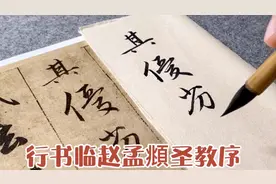 其優劣
其優劣
行书临赵孟頫圣教序